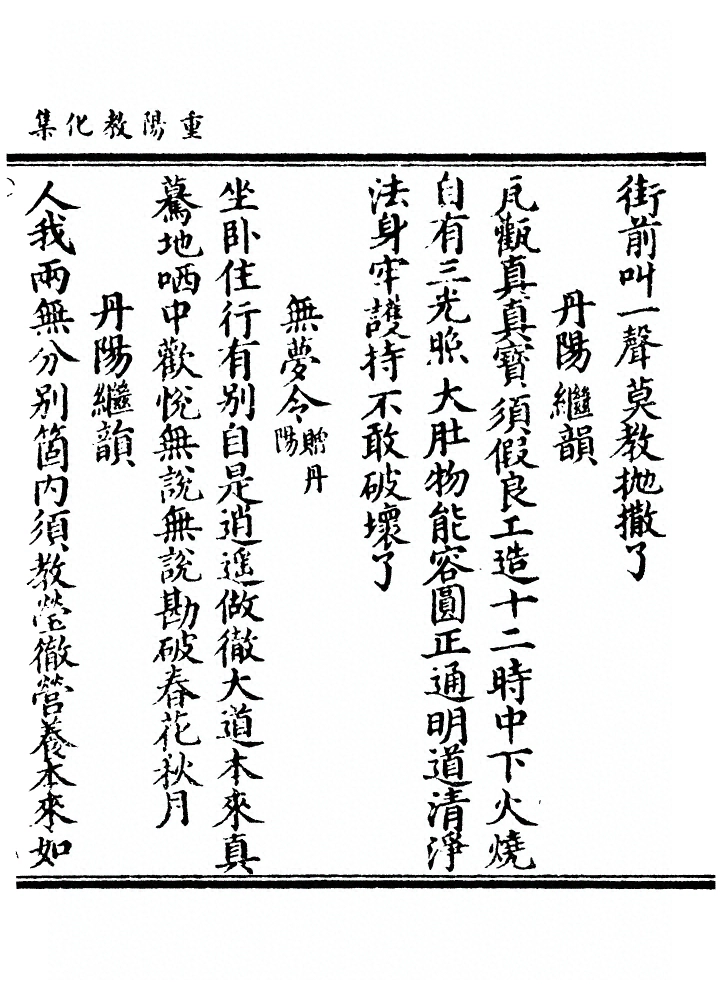 重陽教化集
街前叫一聲莫教抛撒了
丹陽繼韻
瓦甎真真寶須假良工造十二時中下火燒
自有三光照大肚物能容圓正通明道清淨
法身牢護持不敢破壞了
無夢令贈丹陽
坐卧住行有别自是逍遥做徹大道本來真
驀地哂中歡悅無說無說勘破春花秋月
丹陽繼韻
人我兩無分别箇内須教瑩徹營養本來如